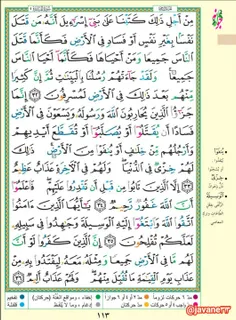 مِنْ أَجْلِ ذَٰلِكَ كَتَبْنَا عَلَىٰ بَنِىٓ إِسْرَٰٓءِيلَ أَنَّهُۥ مَن قَتَلَ
نَفْسًۢا بِغَيْرِ نَفْسٍ أَوْ فَسَادٍ فِى ٱلْأَرْضِ فَكَأَنَّمَا قَتَلَ
ٱلنَّاسَ جَمِيعًا وَمَنْ أَحْيَاهَا فَكَأَنَّمَآ أَحْيَا ٱلنَّاسَ
جَمِيعًا ۚ وَلَقَدْ جَآءَتْهُمْ رُسُلُنَا بِٱلْبَيِّنَٰتِ ثُمَّ إِنَّ كَثِيرًا
مِّنْهُم بَعْدَ ذَٰلِكَ فِى ٱلْأَرْضِ لَمُسْرِفُونَ ٣٢ إِنَّمَا
جَزَٰٓؤُا۟ ٱلَّذِينَ يُحَارِبُونَ ٱللَّهَ وَرَسُولَهُۥ وَيَسْعَوْنَ فِى ٱلْأَرْضِ
فَسَادًا أَن يُقَتَّلُوٓا۟ أَوْ يُصَلَّبُوٓا۟ أَوْ تُقَطَّعَ أَيْدِيهِمْ
وَأَرْجُلُهُم مِّنْ خِلَٰفٍ أَوْ يُنفَوْا۟ مِنَ ٱلْأَرْضِ ۚ ذَٰلِكَ
لَهُمْ خِزْىٌ فِى ٱلدُّنْيَا ۖ وَلَهُمْ فِى ٱلْءَاخِرَةِ عَذَابٌ عَظِيمٌ
٣٣ إِلَّا ٱلَّذِينَ تَابُوا۟ مِن قَبْلِ أَن تَقْدِرُوا۟ عَلَيْهِمْ ۖ فَٱعْلَمُوٓا۟
أَنَّ ٱللَّهَ غَفُورٌ رَّحِيمٌ ٣٤ يَٰٓأَيُّهَا ٱلَّذِينَ ءَامَنُوا۟
ٱتَّقُوا۟ ٱللَّهَ وَٱبْتَغُوٓا۟ إِلَيْهِ ٱلْوَسِيلَةَ وَجَٰهِدُوا۟ فِى سَبِيلِهِۦ
لَعَلَّكُمْ تُفْلِحُونَ ٣٥ إِنَّ ٱلَّذِينَ كَفَرُوا۟ لَوْ أَنَّ
لَهُم مَّا فِى ٱلْأَرْضِ جَمِيعًا وَمِثْلَهُۥ مَعَهُۥ لِيَفْتَدُوا۟ بِهِۦ مِنْ
عَذَابِ يَوْمِ ٱلْقِيَٰمَةِ مَا تُقُبِّلَ مِنْهُمْ ۖ وَلَهُمْ عَذَابٌ أَلِيمٌ ٣٦
١١٣
@javane77